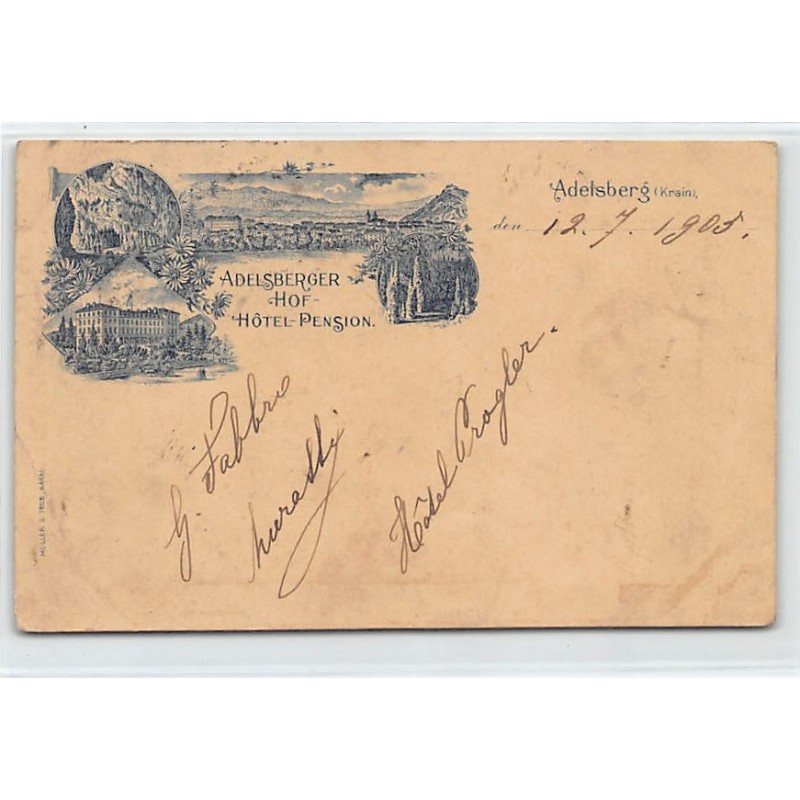 Adelsberg (Krain),
den 12. 7. 1905.
ADELSBERGER
-HOF-
HÔTEL-PENSION.
G. Fabbro
Hôtel Progler.
MÜLLER & TRÜB, AARAU